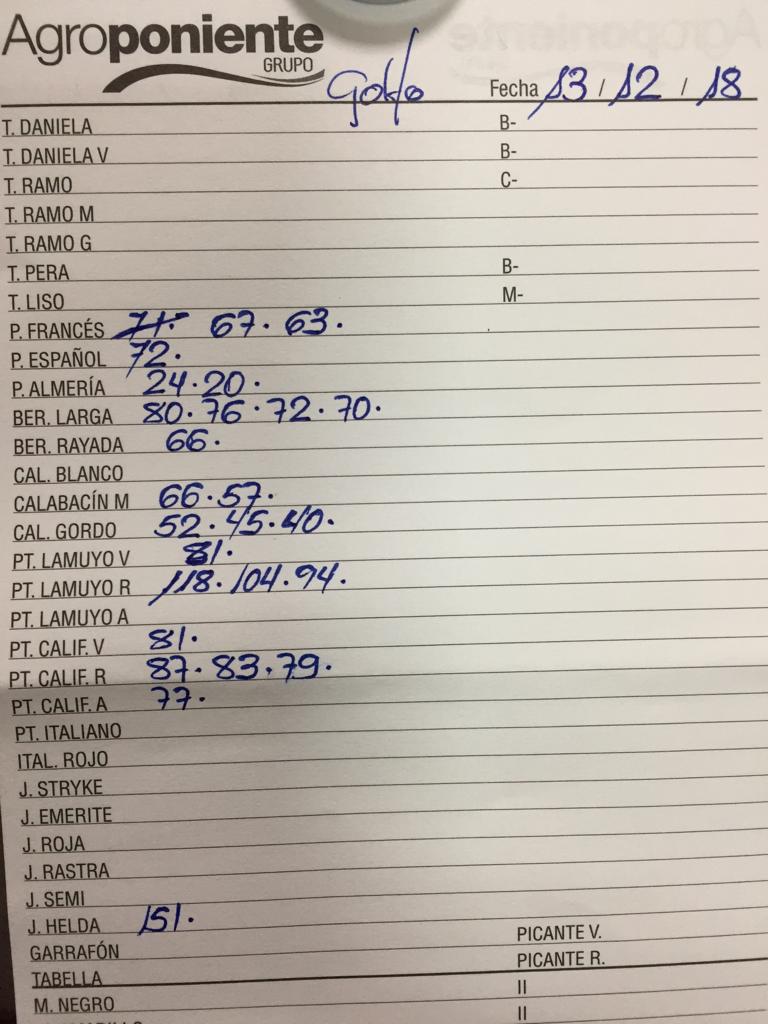 Agroponiente
GRUPO
Golfo Fecha 13 / 12 / 18
T. DANIELA B-
T. DANIELA V B-
T. RAMO C-
T. RAMO M
T. RAMO G
T. PERA B-
T. LISO M-
P. FRANCÉS 71. 67. 63.
P. ESPAÑOL 72.
P. ALMERÍA 24. 20.
BER. LARGA 80. 76. 72. 70.
BER. RAYADA 66.
CAL. BLANCO
CALABACÍN M 66. 57.
CAL. GORDO 52. 45. 40.
PT. LAMUYO V 81.
PT. LAMUYO R 118. 104. 94.
PT. LAMUYO A
PT. CALIF. V 81.
PT. CALIF. R 87. 83. 79.
PT. CALIF. A 77.
PT. ITALIANO
ITAL. ROJO
J. STRYKE
J. EMERITE
J. ROJA
J. RASTRA
J. SEMI
J. HELDA 151.
GARRAFÓN PICANTE V.
TABELLA PICANTE R.
M. NEGRO II
II